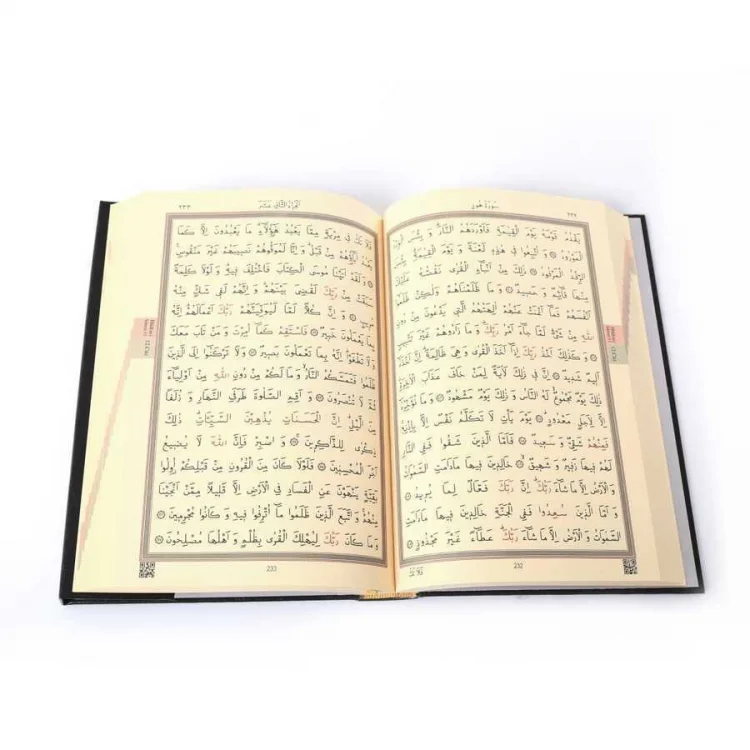 سُورَةُ هُودٍ ٢٣٢
يَقْدُمُ قَوْمَهُ يَوْمَ الْقِيٰمَةِ فَاَوْرَدَهُمُ النَّارَ وَبِئْسَ الْوِرْدُ
الْمَوْرُودُ ۞ وَاُتْبِعُوا فِي هٰذِهِ لَعْنَةً وَيَوْمَ الْقِيٰمَةِ بِئْسَ
الرِّفْدُ الْمَرْفُودُ ۞ ذٰلِكَ مِنْ اَنْبَاءِ الْقُرٰى نَقُصُّهُ عَلَيْكَ
مِنْهَا قَائِمٌ وَحَصِيدٌ ۞ وَمَا ظَلَمْنَاهُمْ وَلٰكِنْ ظَلَمُوا
اَنْفُسَهُمْ فَمَا اَغْنَتْ عَنْهُمْ اٰلِهَتُهُمُ الَّتِي يَدْعُونَ مِنْ دُونِ
اللّٰهِ مِنْ شَيْءٍ لَمَّا جَاءَ اَمْرُ رَبِّكَ وَمَا زَادُوهُمْ غَيْرَ تَتْبِيبٍ
۞ وَكَذٰلِكَ اَخْذُ رَبِّكَ اِذَا اَخَذَ الْقُرٰى وَهِيَ ظَالِمَةٌ اِنَّ اَخْذَهُ
اَلِيمٌ شَدِيدٌ ۞ اِنَّ فِي ذٰلِكَ لَاٰيَةً لِمَنْ خَافَ عَذَابَ الْاٰخِرَةِ
ذٰلِكَ يَوْمٌ مَجْمُوعٌ لَهُ النَّاسُ وَذٰلِكَ يَوْمٌ مَشْهُودٌ ۞ وَمَا نُؤَخِّرُهُ
اِلَّا لِاَجَلٍ مَعْدُودٍ ۞ يَوْمَ يَاْتِ لَا تَكَلَّمُ نَفْسٌ اِلَّا بِاِذْنِهِ
فَمِنْهُمْ شَقِيٌّ وَسَعِيدٌ ۞ فَاَمَّا الَّذِينَ شَقُوا فَفِي النَّارِ
لَهُمْ فِيهَا زَفِيرٌ وَشَهِيقٌ ۞ خَالِدِينَ فِيهَا مَادَامَتِ السَّمٰوَاتُ
وَالْاَرْضُ اِلَّا مَا شَاءَ رَبُّكَ اِنَّ رَبَّكَ فَعَّالٌ لِمَا يُرِيدُ
۞ وَاَمَّا الَّذِينَ سُعِدُوا فَفِي الْجَنَّةِ خَالِدِينَ فِيهَا مَادَامَتِ
السَّمٰوَاتُ وَالْاَرْضُ اِلَّا مَا شَاءَ رَبُّكَ عَطَاءً غَيْرَ مَجْذُوذٍ ۞
232
اَلْجُزْءُ الثَّانِي عَشَرَ ٢٣٣
فَلَا تَكُ فِي مِرْيَةٍ مِمَّا يَعْبُدُ هٰؤُلَاءِ مَا يَعْبُدُونَ اِلَّا كَمَا
يَعْبُدُ اٰبَاؤُهُمْ مِنْ قَبْلُ وَاِنَّا لَمُوَفُّوهُمْ نَصِيبَهُمْ غَيْرَ مَنْقُوصٍ
۞ وَلَقَدْ اٰتَيْنَا مُوسَى الْكِتَابَ فَاخْتُلِفَ فِيهِ وَلَوْلَا كَلِمَةٌ
سَبَقَتْ مِنْ رَبِّكَ لَقُضِيَ بَيْنَهُمْ وَاِنَّهُمْ لَفِي شَكٍّ مِنْهُ
مُرِيبٍ ۞ وَاِنَّ كُلًّا لَمَّا لَيُوَفِّيَنَّهُمْ رَبُّكَ اَعْمَالَهُمْ اِنَّهُ
بِمَا يَعْمَلُونَ خَبِيرٌ ۞ فَاسْتَقِمْ كَمَا اُمِرْتَ وَمَنْ تَابَ مَعَكَ
وَلَا تَطْغَوْا اِنَّهُ بِمَا تَعْمَلُونَ بَصِيرٌ ۞ وَلَا تَرْكَنُوا اِلَى الَّذِينَ
ظَلَمُوا فَتَمَسَّكُمُ النَّارُ وَمَا لَكُمْ مِنْ دُونِ اللّٰهِ مِنْ اَوْلِيَاءَ
ثُمَّ لَا تُنْصَرُونَ ۞ وَاَقِمِ الصَّلٰوةَ طَرَفَيِ النَّهَارِ وَزُلَفًا
مِنَ الَّيْلِ اِنَّ الْحَسَنَاتِ يُذْهِبْنَ السَّيِّـَٔاتِ ذٰلِكَ
ذِكْرٰى لِلذَّاكِرِينَ ۞ وَاصْبِرْ فَاِنَّ اللّٰهَ لَا يُضِيعُ
اَجْرَ الْمُحْسِنِينَ ۞ فَلَوْلَا كَانَ مِنَ الْقُرُونِ مِنْ قَبْلِكُمْ اُولُوا
بَقِيَّةٍ يَنْهَوْنَ عَنِ الْفَسَادِ فِي الْاَرْضِ اِلَّا قَلِيلًا مِمَّنْ اَنْجَيْنَا
مِنْهُمْ وَاتَّبَعَ الَّذِينَ ظَلَمُوا مَا اُتْرِفُوا فِيهِ وَكَانُوا مُجْرِمِينَ ۞
وَمَا كَانَ رَبُّكَ لِيُهْلِكَ الْقُرٰى بِظُلْمٍ وَاَهْلُهَا مُصْلِحُونَ ۞
233